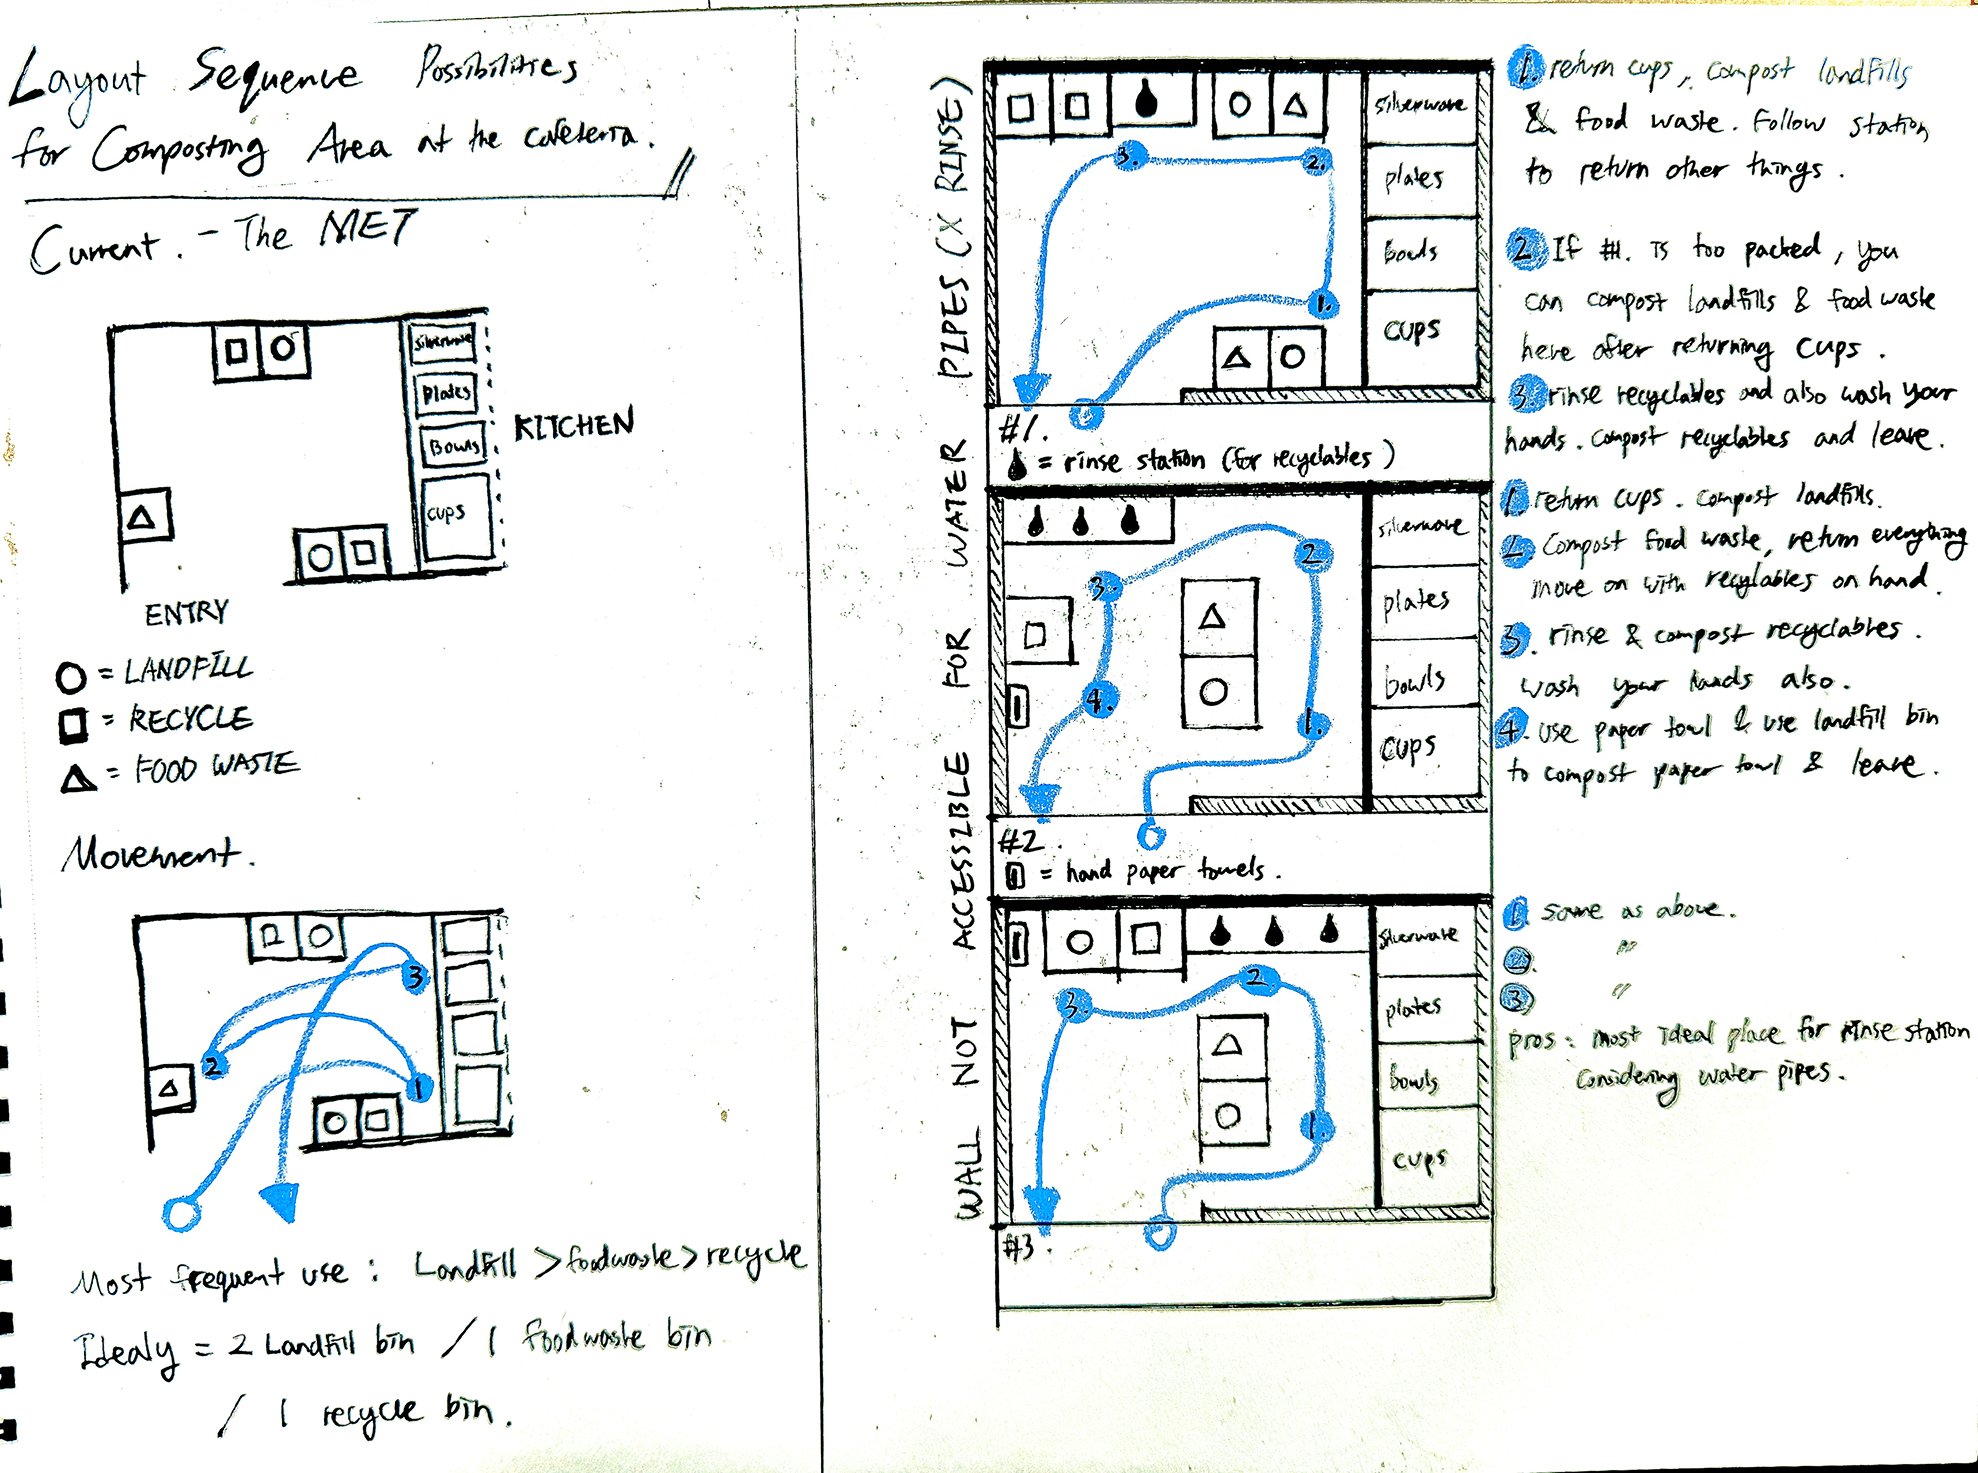 Layout Sequence Possibilities
for Composting Area at the cafeteria.
Current. - The MET
silverware
plates
Bowls
cups
KITCHEN
ENTRY
= LANDFILL
= RECYCLE
= FOOD WASTE
Movement.
1
2
3
Most frequent use : Landfill > foodwaste > recycle
Idealy = 2 Landfill bin / 1 foodwaste bin
/ 1 recycle bin.
WALL NOT ACCESSIBLE FOR WATER PIPES (X RINSE)
silverware
plates
bowls
cups
1.
2.
3.
#1.
= rinse station (for recyclables)
silverware
plates
bowls
cups
1.
2
3.
4.
#2.
= hand paper towels.
silverware
plates
bowls
cups
1.
2
3.
#3.
1. return cups, compost landfills
& food waste. Follow station
to return other things.
2. If #1. is too packed, you
can compost landfills & food waste
here after returning cups.
3. rinse recyclables and also wash your
hands. compost recyclables and leave.
1. return cups. compost landfills.
2. Compost food waste, return everything
move on with recylables on hand.
3. rinse & compost recyclables.
wash your hands also.
4. use paper towl & use landfill bin
to compost paper towl & leave.
1. same as above.
2. "
3. "
pros : most ideal place for rinse station
considering water pipes.